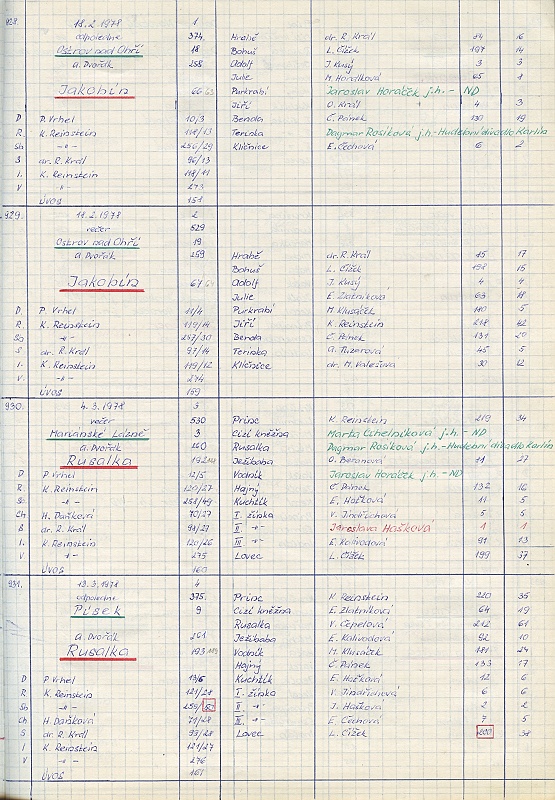 928. 18.2.1978 1
odpoledne 374. Hrabě dr. R. Král 14 16
Ostrov nad Ohří 18 Bohuš L. Čížek 197 14
a. Dvořák 258 Adolf J. Kusý 3 3
Julie M. Horálková 65 1
Jakobín 66 63 Purkrabí Jaroslav Horáček j.h. - ND
Jiří O. Král 4 3
D P. Vrhel 10/3 Benda Č. Pánek 130 19
R K. Reinstein 118/13 Terinka Dagmar Rosíková j.h.- Hudební divadlo Karlín
Sb -"- 256/29 Kličnice E. Čechová 6 2
S dr. R. Král 96/13
I. K. Reinstein 118/11
V -"- 273
ÚVOS 151
929. 18.2.1978 2
večer 529
Ostrov nad Ohří 19
a. Dvořák 259 Hrabě dr. R. Král 15 17
Bohuš L. Čížek 198 15
Jakobín 67 64 Adolf J. Kusý 4 4
Julie E. Zlatníková 63 18
D. P. Vrhel 11/4 Purkrabí M. Klusáček 180 5
R. K. Reinstein 119/14 Jiří K. Reinstein 218 42
Sb -"- 257/30 Benda Č. Pánek 131 20
S dr. R. Král 97/14 Terinka A. Tuzarová 45 5
I. K. Reinstein 119/12 Kličnice dr. M. Valešová 30 12
V. -"- 274
ÚVOS 159
930. 4.3.1978 3
večer 530 Princ K. Reinstein 219 34
Mariánské Lázně 3 Cizí kněžna Marta Cihelníková j.h. - ND
a. Dvořák 260 Rusalka Dagmar Rosíková j.h.- Hudební divadlo Karlín
Rusalka 192 Ježibaba O. Beranová 11 27
D P. Vrhel 12/5 Vodník Jaroslav Horáček j.h. - ND
R K. Reinstein 120/27 Hajný Č. Pánek 132 16
Sb -"- 258/49 Kuchtík E. Hošková 11 5
Ch H. Daňková 70/27 I. žínka V. Jindřichová 5 5
S dr. R. Král 98/27 II -"- Jaroslava Hašková 1 1
I. K. Reinstein 120/26 III -"- E. Kalivodová 91 13
V -"- 275 Lovec L. Čížek 199 37
ÚVOS 160
931. 12.3.1978 4
odpoledne 375. Princ K. Reinstein 220 35
Písek 9 Cizí kněžna E. Zlatníková 64 19
Rusalka V. Čepelová 212 61
a. Dvořák 261 Ježibaba E. Kalivodová 92 10
Rusalka 193 Vodník M. Klusáček 181 24
Hajný Č. Pánek 133 17
D P. Vrhel 13/6 Kuchtík E. Hošková 12 6
R K. Reinstein 121/28 I. žínka V. Jindřichová 6 6
Sb -"- 259/50 II -"- J. Hašková 2 2
Ch H. Daňková 71/28 III -"- E. Čechová 7 5
S dr. R. Král 99/28 Lovec L. Čížek 200 38
I K. Reinstein 121/27
V -"- 276
ÚVOS 161